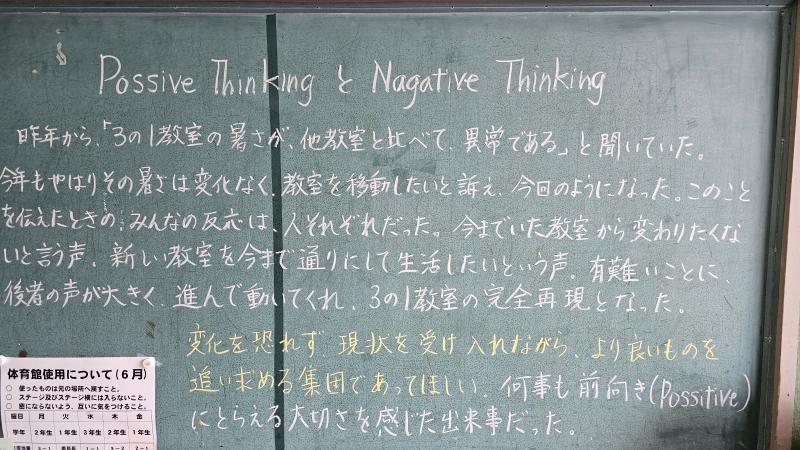 Possive Thinking と Nagative Thinking
昨年から、「3の1教室の暑さが、他教室と比べて、異常である」と聞いていた。
今年もやはりその暑さは変化なく、教室を移動したいと訴え、今回のようになった。このこと
を伝えたときの、みんなの反応は、人それぞれだった。今までいた教室から変わりたくな
いと言う声、新しい教室を今まで通りにして生活したいという声。有難いことに、
後者の声が大きく、進んで動いてくれ、3の1教室の完全再現となった。
変化を恐れず、現状を受け入れながら、より良いものを
追い求める集団であってほしい。何事も前向き(Possitive)
にとらえる大切さを感じた出来事だった。
体育館使用について(6月)
○ 使ったものは元の場所へ戻すこと。
○ ステージ及びステージ横には入らないこと。
○ 密にならないよう、互いに気をつけること。
曜日 月 火 水 木 金
学年 2年生 1年生 3年生 2年生 1年生
3-1 1-1 3-2 2-1